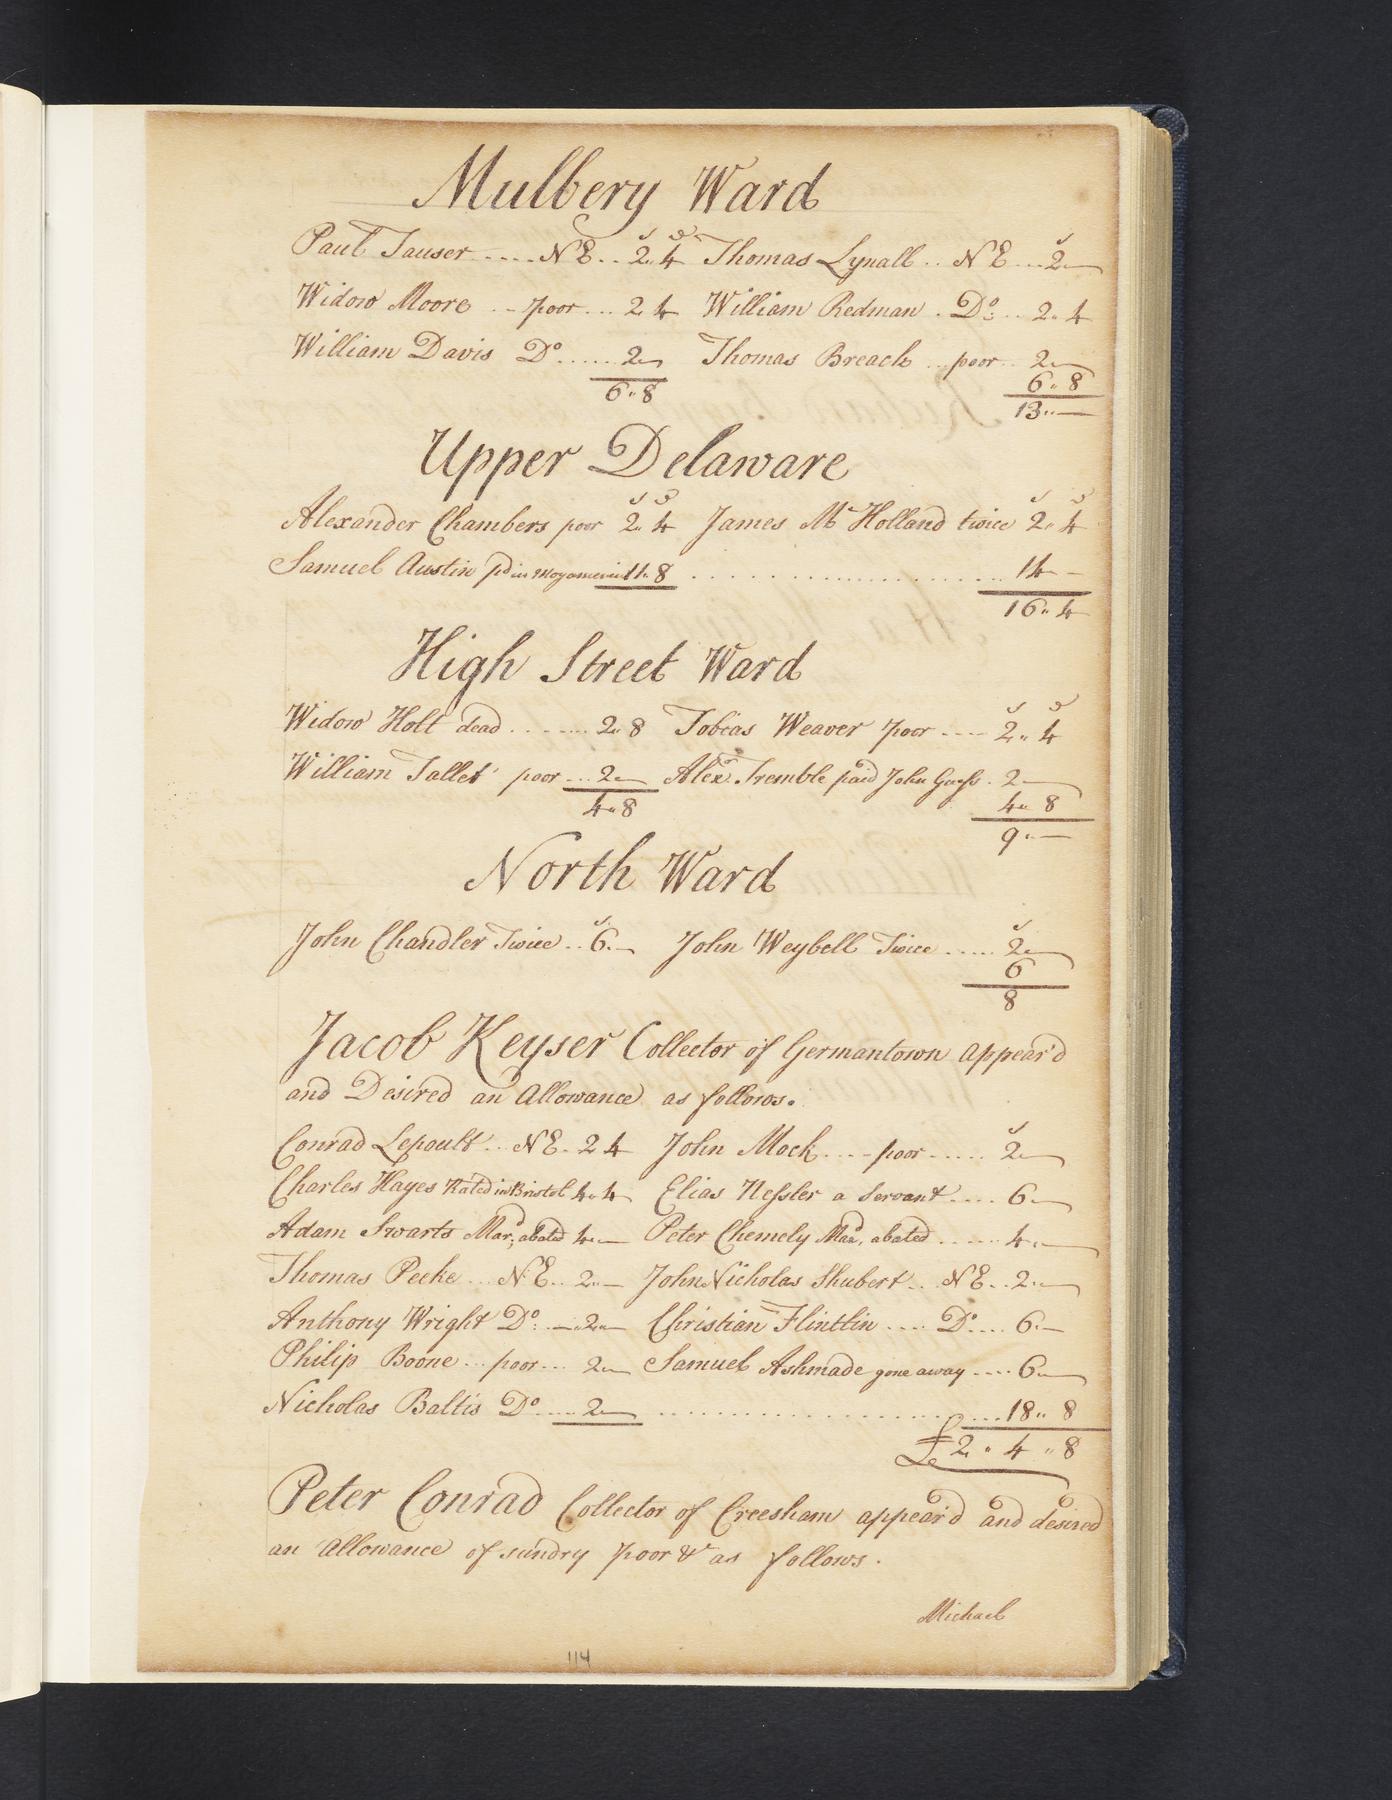 Mulbery Ward
Paul Tauser .... N E .. 2.. 4 Thomas Lynall .. N E ... 2 —
Widow Moore .. poor ... 2 4 William Redman . Do. .. 2.. 4
William Davis Do ...... 2 — Thomas Breach .. poor .. 2 —
6.. 8 6.. 8
13.. —
Upper Delaware
s d s d
Alexander Chambers poor 2.. 4 James Mc Holland twice 2.. 4
Samuel Austin pd in Moyamensin 11.. 8 .................... 14 —
16.. 4
High Street Ward
s d
Widow Holt dead ....... 2.. 8 Tobias Weaver poor .... 2.. 4
William Tallet poor ... 2 — Alexr. Tremble paid John Guess . 2 —
4.. 8 4.. 8
9.. —
North Ward
s s
John Chandler Twice .. 6. — John Weybell Twice ..... 2 —
6
8
Jacob Keyser Collector of Germantown appear'd
and Desired an Allowance as follows.
s
Conrad Lepoult .. N E . 2 4 John Mock .... poor ..... 2 —
Charles Hayes Rated in Bristol 4.. 4 Elias Nessler a Servant .... 6 —
Adam Swarts Mard; abated 4. — Peter Chemely Mard, abated ....... 4. —
Thomas Pecke ... N E .. 2.. — John Nicholas Shubert .. N E .. 2. —
Anthony Wright Do. — .. 2.. — Christian Flintlin .... Do .... 6. —
Philip Boone ... poor ... 2 — Samuel Ashmade gone away .... 6 —
Nicholas Baltis Do ..... 2 — ........................ 18.. 8
£ 2 . 4 .. 8
Peter Conrad Collector of Creesham appear'd and desired
an Allowance of sundry poor &c as follows.
Michael
114